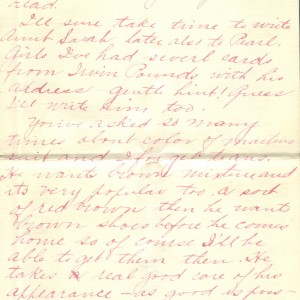 read.
I'll sure take time to write
Aunt Sarah later also to Pearl.
Girls I've had severl cards
from Irvin Pounds with his
address gentle hint! Guess
I'll write him too.
You've asked so many
times about color of
suit and I forget to ans.
He wants brown mixture and
its very popular too. A sort
of red brown then he want
brown shoes before he comes
home so of course I'll be
able to get them then. He
takes real good care of his
appearance - as good is poss-